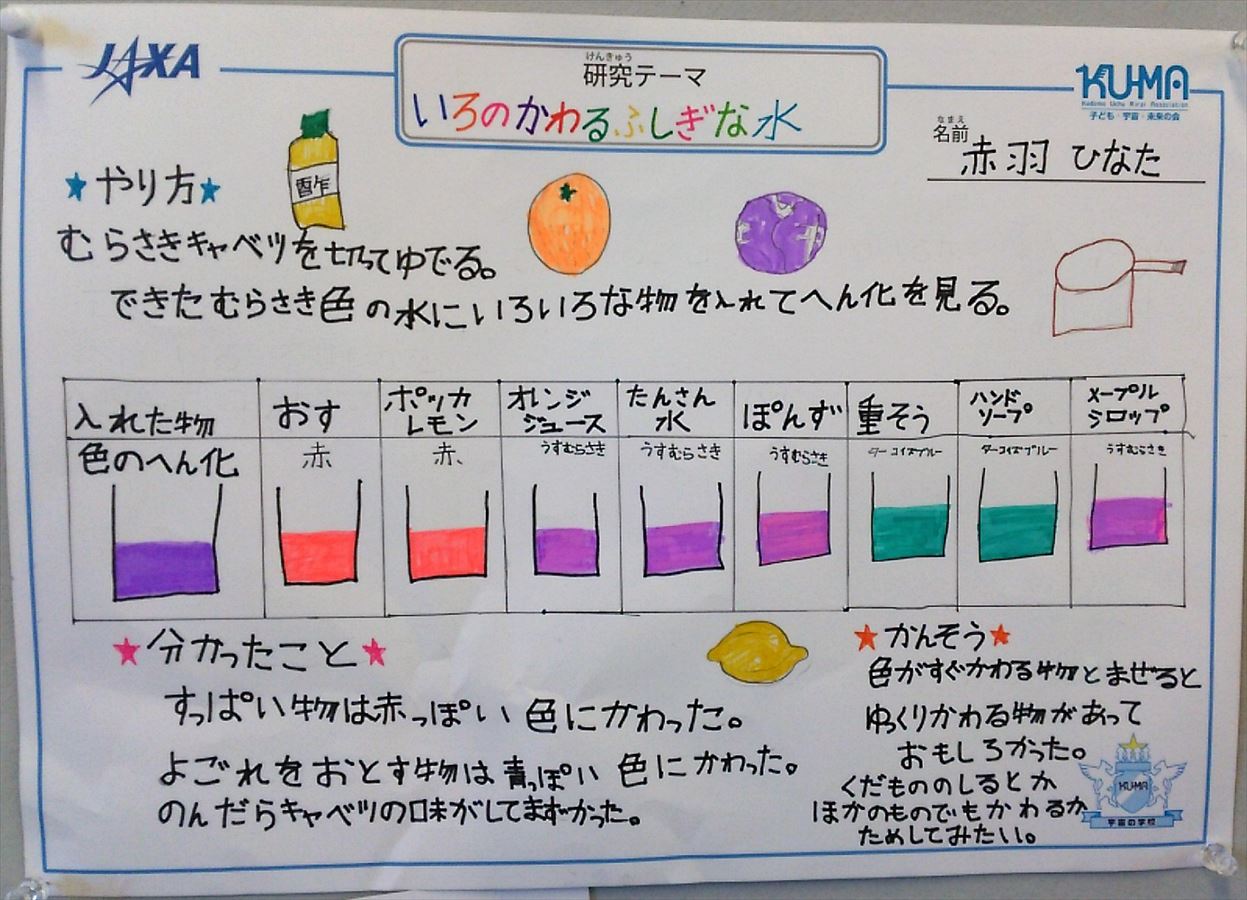 JAXA
けんきゅう
研究テーマ
いろのかわるふしぎな水
KU-MA
Kodomo Uchu Mirai Association
子ども・宇宙・未来の会
なまえ
名前 赤羽 ひなた
★やり方★
酢
むらさきキャベツを切ってゆでる。
できたむらさき色の水にいろいろな物を入れてへん化を見る。
入れた物 おす ポッカレモン オレンジジュース たんさん水 ぽんず 重そう ハンドソープ メープルシロップ
色のへん化 赤 赤、 うすむらさき うすむらさき うすむらさき ターコイズブルー ターコイズブルー うすむらさき
★分かったこと★
すっぱい物は赤っぽい色にかわった。
よごれをおとす物は青っぽい色にかわった。
のんだらキャベツの味がしてまずかった。
★かんそう★
色がすぐかわる物とまぜると
ゆくりかわる物があって
おもしろかった。
くだもののしるとか
ほかのものでもかわるか
ためしてみたい。
KU-MA
宇宙の学校